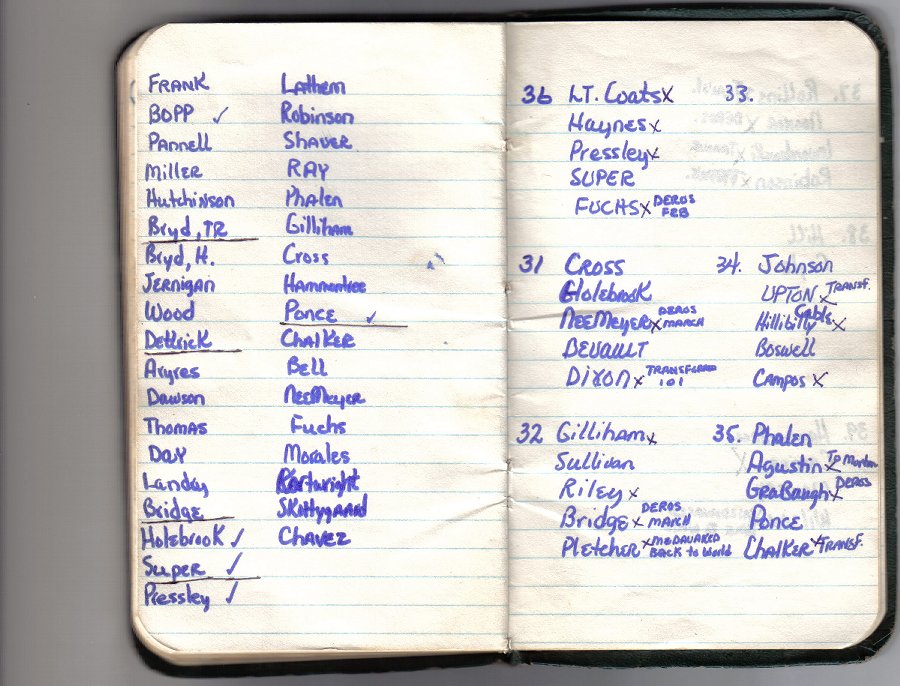 FRANK
BOPP ✓
Pannell
Miller
Hutchinson
Bryd, TR
Bryd, H.
Jernigan
Wood
Dettrick
Aryres
Dawson
Thomas
Day
Landay
Bridge
Holebrook ✓
Super ✓
Pressley ✓
Lathem
Robinson
Shaver
RAY
Phalen
Gilliham
Cross
Hammontree
Ponce ✓
Chalker
Bell
NeeMeyer
Fuchs
Morales
Cartwright
Skittygaard
Chavez
36 LT. Coats x
Haynes x
Pressley x
SUPER
FUCHS x DEROS FEB
31 CROSS
Holebrook
NeeMeyer x DEROS MARCH
DEVAULT
DIXON x TRANSFERRED 101
32 Gilliham x
Sullivan
Riley x
Bridge x DEROS MARCH
Pletcher x MEDAVAKED Back to World
33.
34. Johnson
UPTON x TRANSF.
Hillbilly Gable x
Boswell
Campos x
35. Phalen
Agustin x To Mortar
GraBaugh x DEROS
Ponce
Chalker x TRANSF.